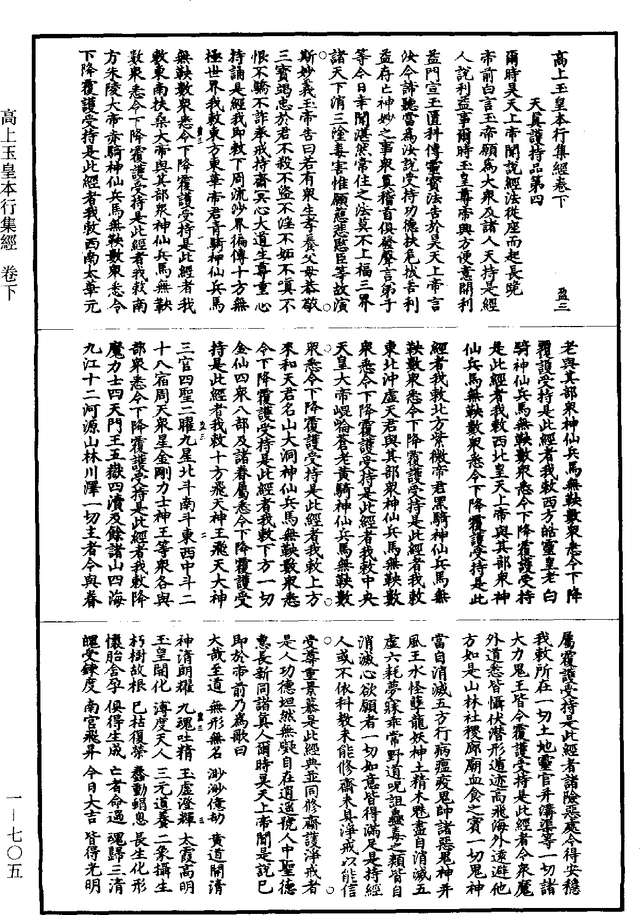 高上玉皇本行集經卷下
盈三
天真護持品第四
爾時昊天上帝聞說經法從座而起長跪
帝前白言玉帝願為大衆及諸人天持是經
人說利益事爾時玉皇尊帝興方便意開利
益門宣玉匱科傳靈寶法告於昊天上帝言
汝今諦聽當為汝說受持功德扶危拔苦利
益存亡神妙之事衆真稽首俱發聲言弟子
等今日幸聞湛然常住之法莫不上福三界
諸天下消三塗毒害惟願慈悲愍臣等故演
斯妙義玉帝告曰若有衆生孝養父母恭敬
三寶竭忠於君不殺不盜不淫不妬不嗔不
恨不驕不詐奉戒持齋冥心大道生尊重心
持誦是經我即敕下周流沙界徧傳十方無
極世界我敕東方東華帝君青騎神仙兵馬
無鞅數衆悉令下降覆護受持是此經者我
敕東南扶桑大帝與其部衆神仙兵馬無鞅
數衆悉令下降覆護受持是此經者我敕南
方朱陵大帝赤騎神仙兵馬無鞅數衆悉令
下降覆護受持是此經者我敕西南太華元
老與其部衆神仙兵馬無鞅數衆悉令下降
覆護受持是此經者我敕西方皓靈皇老白
騎神仙兵馬無鞅數衆悉令下降覆護受持
是此經者我敕西北皇天上帝與其部衆神
仙兵馬無鞅數衆悉令下降覆護受持是此
經者我敕北方紫微帝君黑騎神仙兵馬無
鞅數衆悉令下降覆護受持是此經者我敕
東北沖虛天君與其部衆神仙兵馬無鞅數
衆悉令下降覆護受持是此經者我敕中央
天皇大帝崐崘蒼老黃騎神仙兵馬無鞅數
衆悉令下降覆護受持是此經者我敕上方
來和天君名山大洞神仙兵馬無鞅數衆悉
令下降覆護受持是此經者我敕下方一切
金仙四衆八部及諸眷屬悉令下降覆護受
持是此經者我敕十方飛天神王飛天大神
三官四聖二曜九星北斗南斗東西中斗二
十八宿周天衆星金剛力士神王等衆各與
部衆悉令下降覆護受持是此經者我敕降
魔力士四天門王五嶽四瀆及餘諸山四海
九江十二河源山林川澤一切主者令與眷
屬覆護受持是此經者諸險惡處令得安穩
我敕所在一切土地靈官井溝渠等一切諸
大力鬼王皆令覆護受持是此經者令衆魔
外道悉皆懾伏潛形遁迹高飛海外遠避他
方如是山林社稷廊廟血食之賓一切鬼神
當自消滅五方行病瘟疫鬼帥諸惡鬼神井
風王水怪孽龍妖神土精木魅盡自消滅五
虛六耗夢寐乖常野道呪詛蠱毒之類皆自
消滅心欲願者一切如意皆得滿足是持經
人或不依科教未能修齋未具淨戒以能信
受尊重景慕是此經典並同修齋護淨戒者
是人功德坦然無礙自在逍遙號人中聖德
惠長新同諸真人爾時昊天上帝聞是說已
即於帝前乃為歌曰
大哉至道　無形無名　渺渺億劫　黃道開清
神清朗耀　九魂吐精　玉虛澄輝　太霞高明
玉皇開化　溥度天人　三元道養　二象攝生
朽樹故根　已枯復榮　蠢動蜎息　長生化形
懷胎含孕　俱得生成　亡者命過　魂歸三清
魄受鍊度　南宮飛昇　今日大吉　皆得光明
高上玉皇本行集經　卷下
一—七〇五